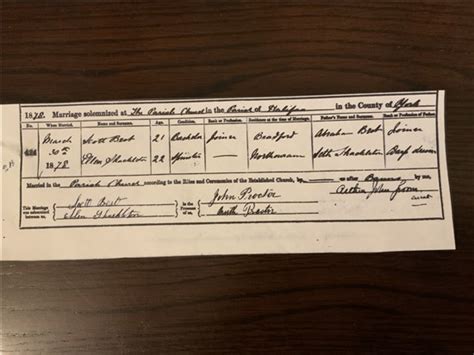 1878. Marriage solemnized at The Parish Church in the Parish of Halifax in the County of York
No. When Married. Name and Surname. Age. Condition. Rank or Profession. Residence at the time of Marriage. Father's Name and Surname. Rank or Profession of Father.
March Scott Best 21 Bachelor Joiner Bradford Abraham Best Joiner
1878. Ellen Shackleton 22 Spinster Northowram Seth Shackleton
Married in the Parish Church according to the Rites and Ceremonies of the Established Church, by after Banns by me,
This Marriage was solemnized between us, Scott Best in the Presence of us, John Proctor
Ellen Shackleton Proctor
Curate